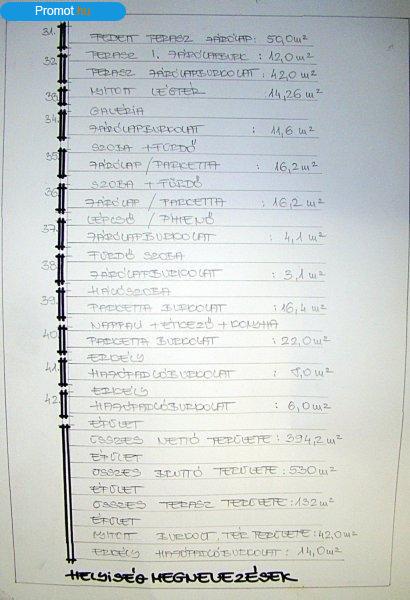 Promot.hu
31. FEDETT TERASZ JÁRÓLAP: 50,0 m²
32. TERASZ I. JÁRÓLAPBURK : 12,0 m²
TERASZ JÁRÓLAPBURKOLAT : 42,0 m²
33. NYITOTT LÉGTÉR 14,26 m²
34. GALÉRIA
JÁRÓLAPBURKOLAT : 11,6 m²
35. SZOBA + FÜRDŐ
JÁRÓLAP / PARKETTA : 16,2 m²
36. SZOBA + FÜRDŐ
JÁRÓLAP / PARKETTA : 16,2 m²
37. LÉPCSŐ / PIHENŐ
JÁRÓLAPBURKOLAT : 4,1 m²
38. FÜRDŐ SZOBA
JÁRÓLAPBURKOLAT : 3,1 m²
39. HÁLÓSZOBA
PARKETTA BURKOLAT : 16,4 m²
40. NAPPALI + ÉTKEZŐ + KONYHA
PARKETTA BURKOLAT : 22,0 m²
41. ERKÉLY
HAJÓPADLÓBURKOLAT :
42. ERKÉLY
HAJÓPADLÓBURKOLAT : 6,0 m²
ÉPÜLET
ÖSSZES NETTÓ TERÜLETE : 394,2 m²
ÉPÜLET
ÖSSZES BRUTTÓ TERÜLETE : 530 m²
ÉPÜLET
ÖSSZES TERASZ TERÜLETE : 132 m²
ÉPÜLET
NYITOTT BURKOLT, TÉR TERÜLETE : 42,0 m²
ERKÉLY HAJÓPADLÓBURKOLAT : 14,0 m²
HELYISÉG MEGNEVEZÉSEK